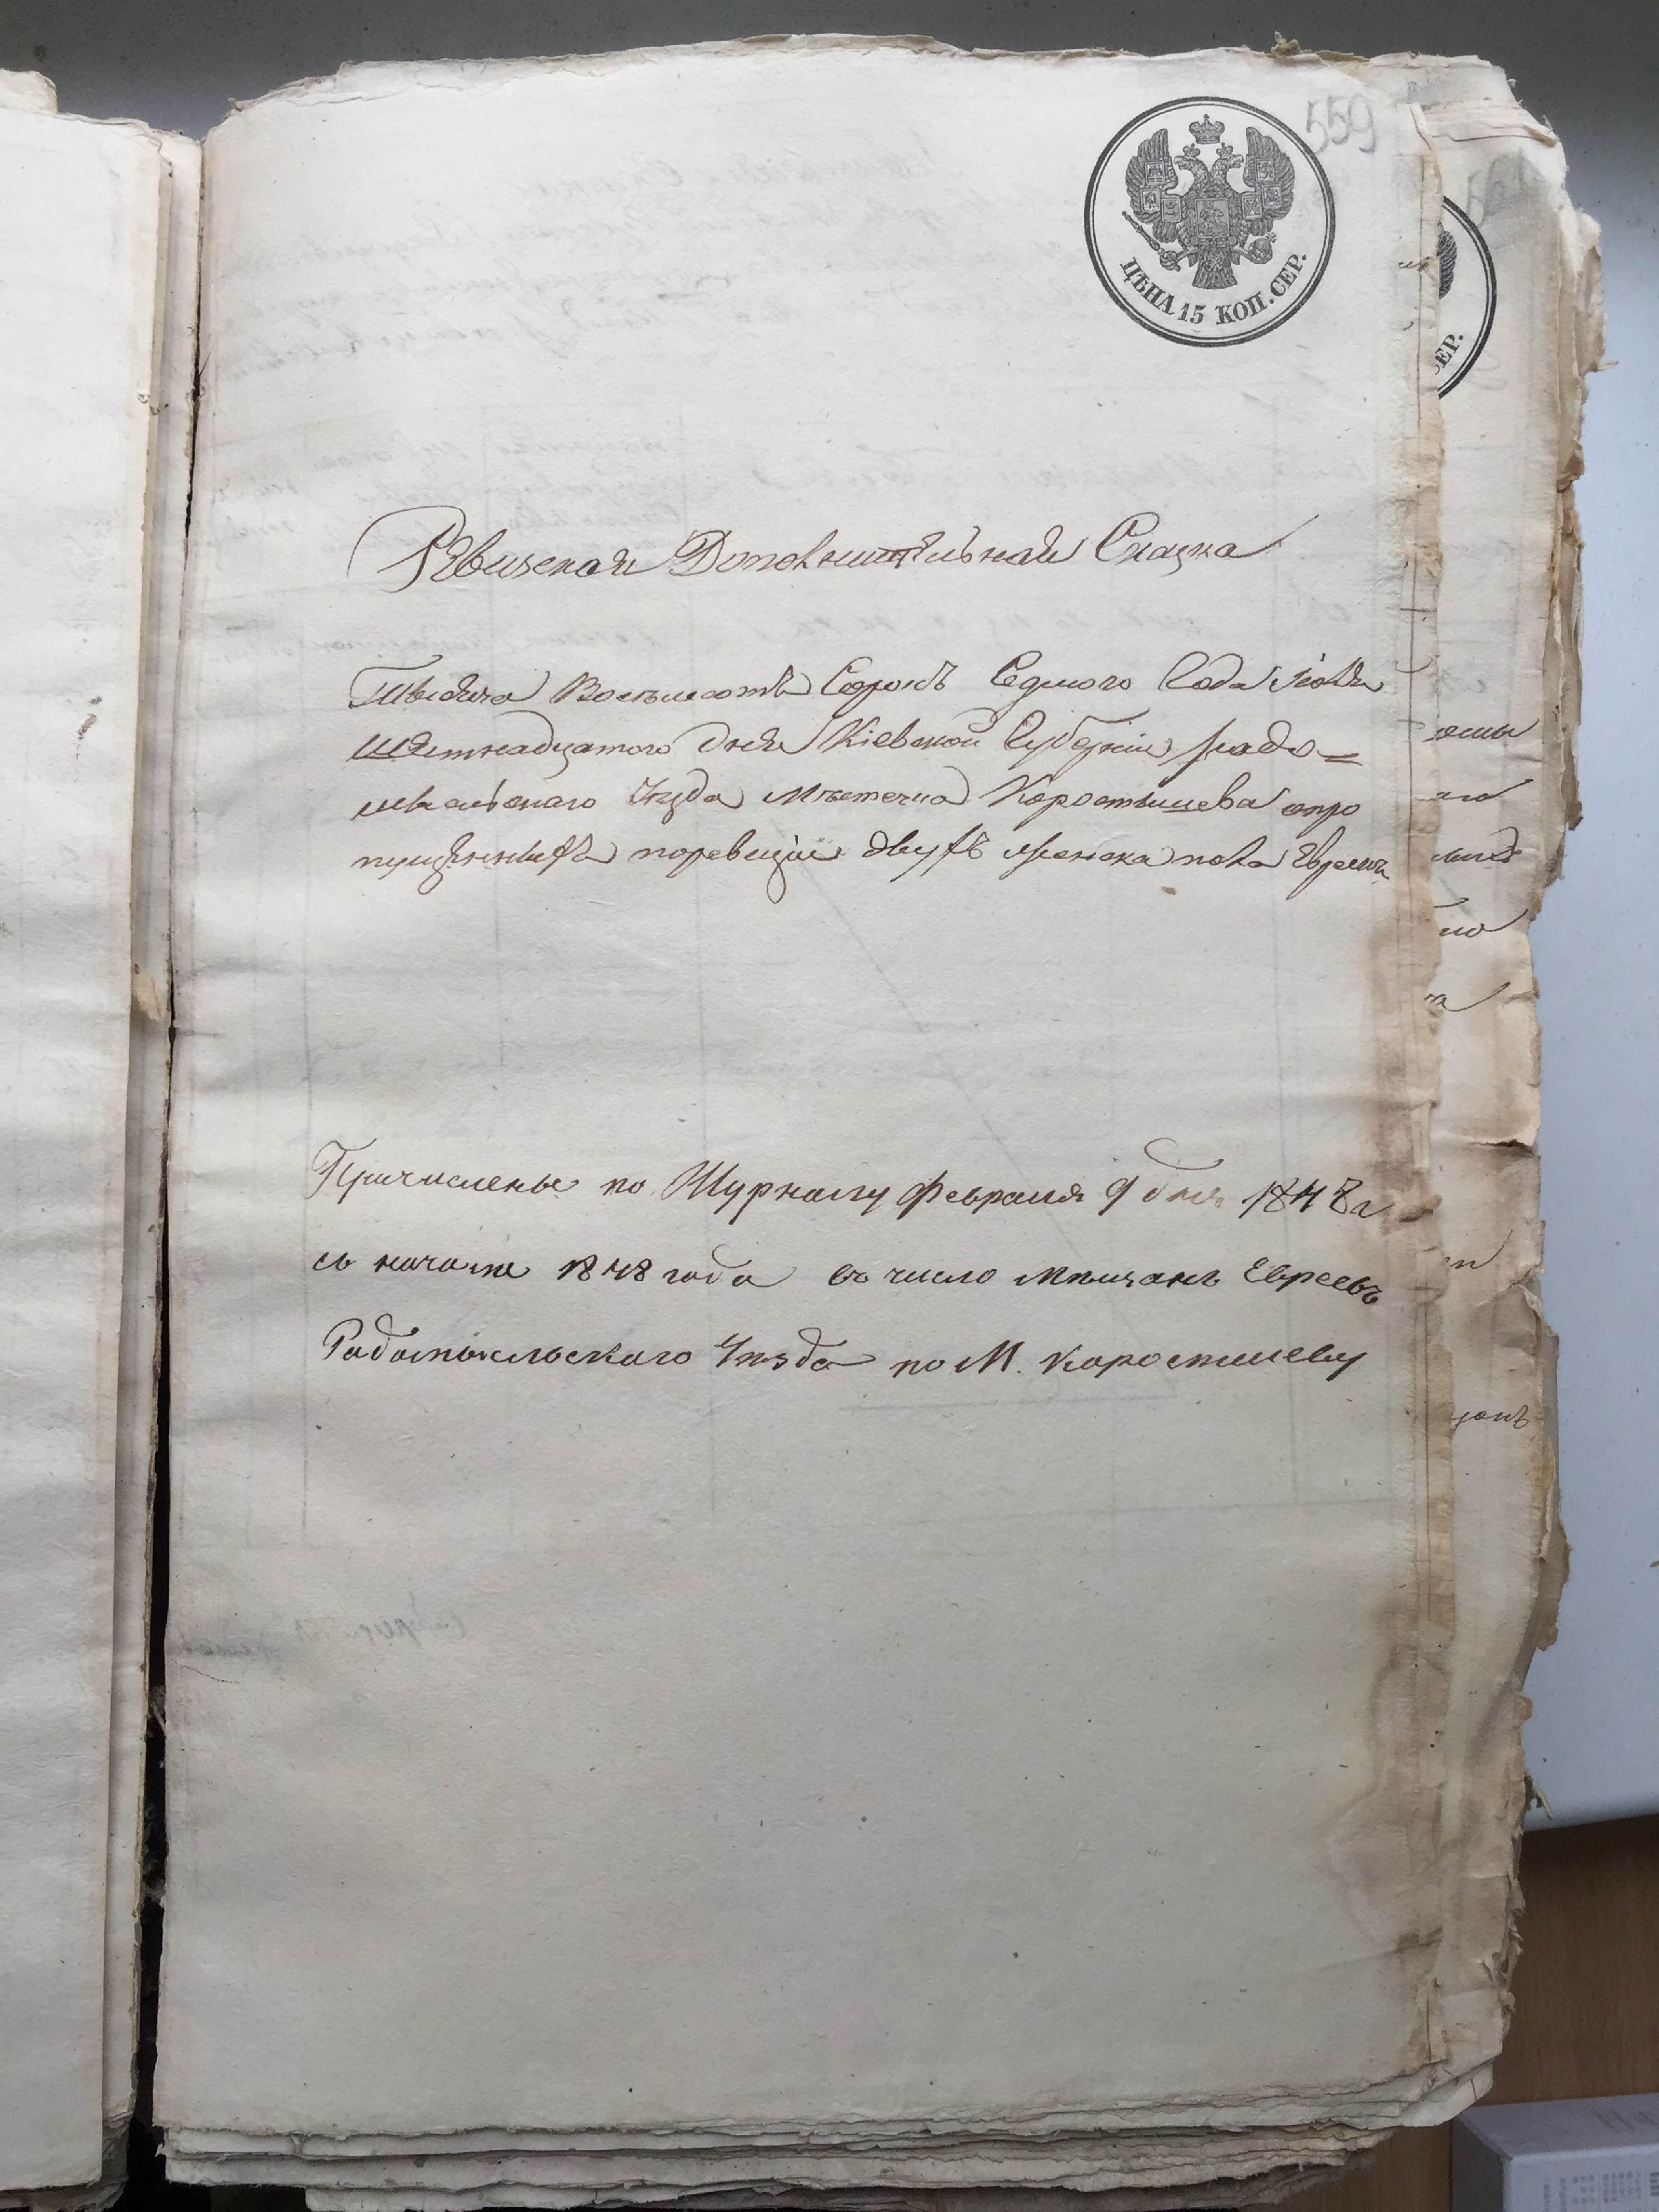 559
ЦѢНА 15 КОП. СЕР.
Ревизская Дополнительная Сказка
Тысяча Восемьсотъ Сорокъ Седмого Года Іюля
шестнадцатого дня Кіевской Губерніи радо=
мысльского уезда Мѣстечка Коростышева опро
пущенныхъ поревизіи двухъ женска пола Евреихъ
Причислены по Журналу Февраля 9 дня 1848 г
съ начала 1848 года въ число Мѣщанъ Евреевъ
Радомысльского Уѣзда по М. Коростышеву
ЕР.